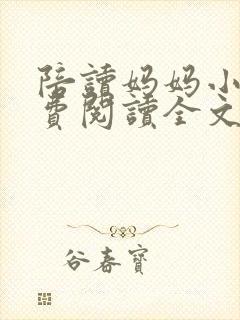 陪讀妈妈小
費閱讀全文
谷春寶